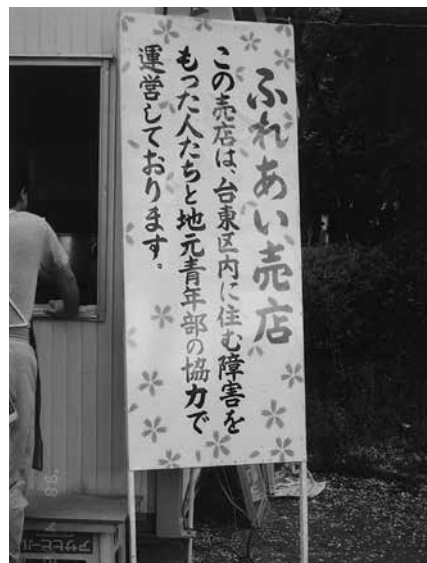 ふれあい売店
この売店は、台東区内に住む障害を
もった人たちと地元青年部の協力で
運営しております。
アサヒビール